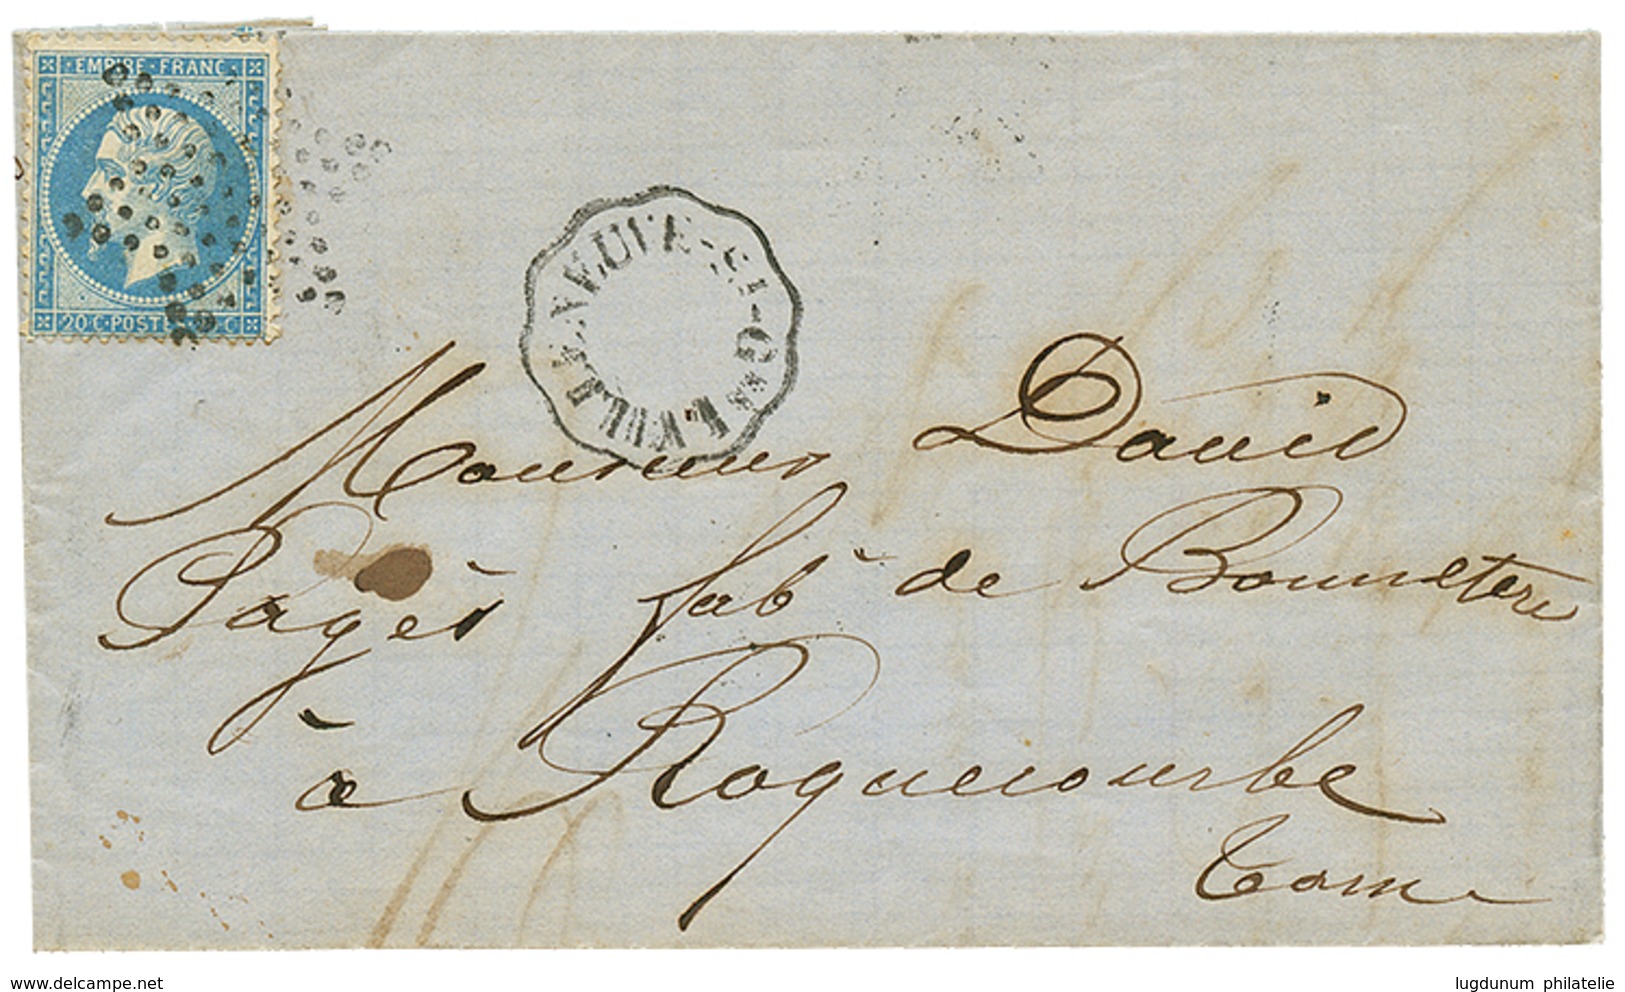 EMPIRE · FRANC
20 C · POSTE · C
VILLENEUVE-ST-G
Monsieur David
Pagès fab de Bonneterie
à Roquecourbe
Tarn
www.delcampe.net
lugdunum philatelie